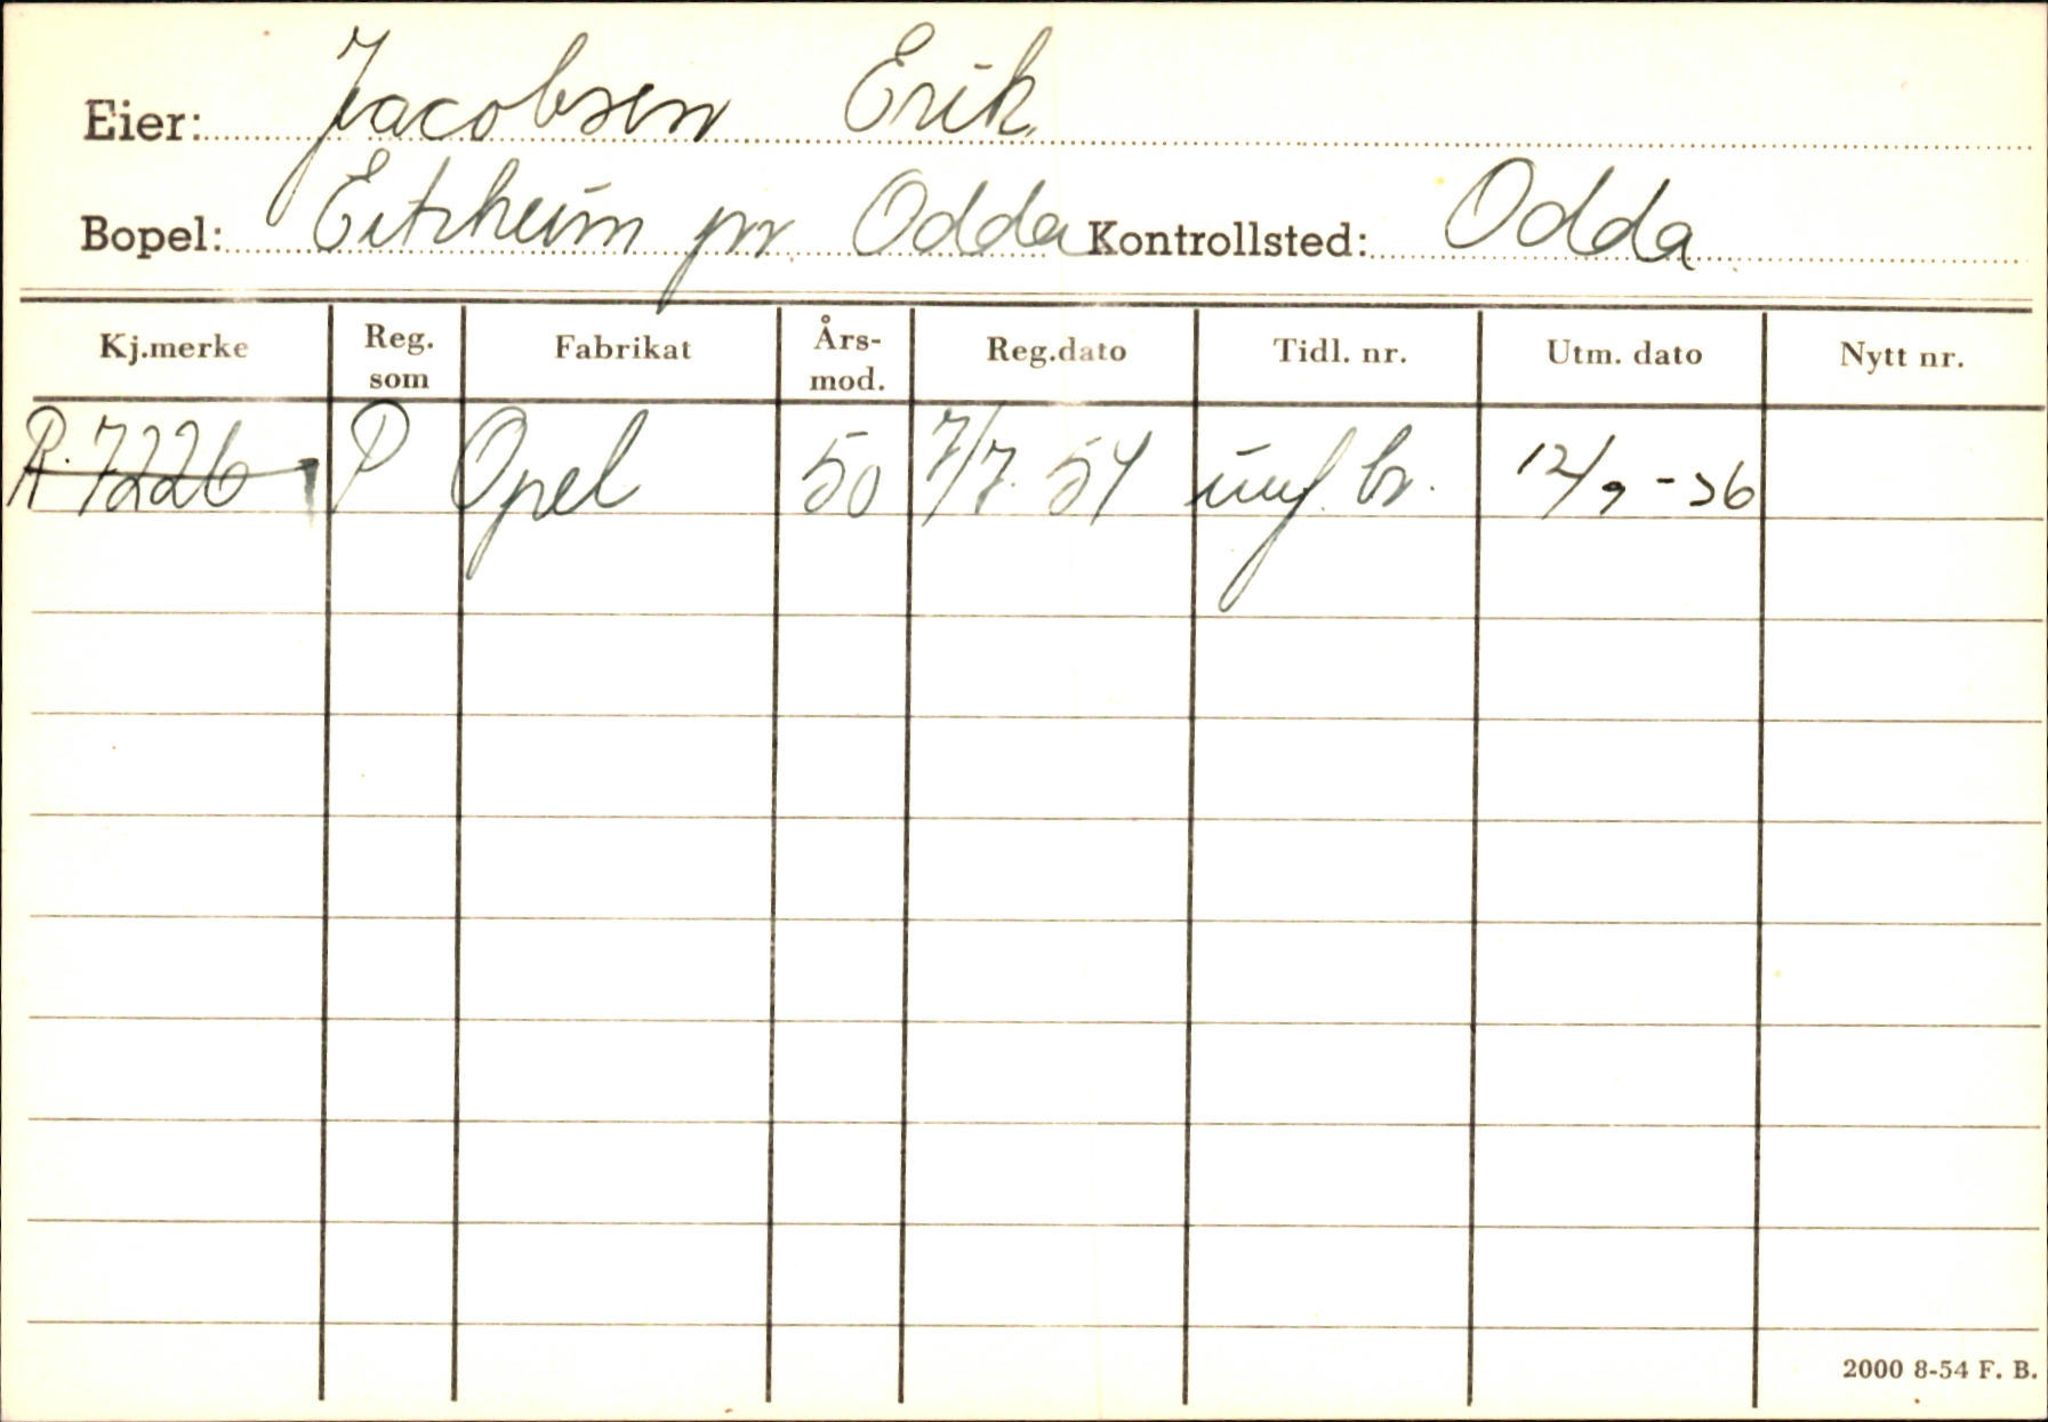 Eier: Jacobsen Erik.
Bopel: Eitrheim pr. Odda Kontrollsted: Odda
Kj.merke Reg. som Fabrikat Års-mod. Reg.dato Tidl. nr. Utm. dato Nytt nr.
R. 7226 P Opel 50 7/7. 54 br. 12/9-56
2000 8-54 F. B.